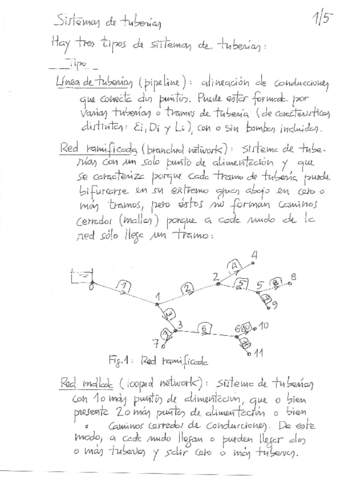 Sistemas de tuberías
1/5
Hay tres tipos de sistemas de tuberías:
Tipo
Línea de tuberías (pipeline): alineación de conducciones
que conecta dos puntos. Puede estar formada por
varias tuberías o tramos de tubería (de características
distintas: Ei, Di y Li), con o sin bombas incluidas.
Red ramificada (branched network): sistema de tube-
rías con un solo punto de alimentación y que
se caracteriza porque cada tramo de tubería puede
bifurcarse en su extremo aguas abajo en cero o
más tramos, pero éstos no forman caminos
cerrados (mallas) porque a cada nudo de la
red sólo llega un tramo:
4
1
2
2
5
5
8
9
1
3
6
6
10
7
11
Fig.1: Red ramificada
Red mallada (looped network): sistema de tuberías
con 1 o más puntos de alimentación, que o bien
presente 2 o más puntos de alimentación o bien
caminos cerrados de conducciones. De este
modo, a cada nudo llegan o pueden llegar dos
o más tuberías y salir cero o más tuberías.